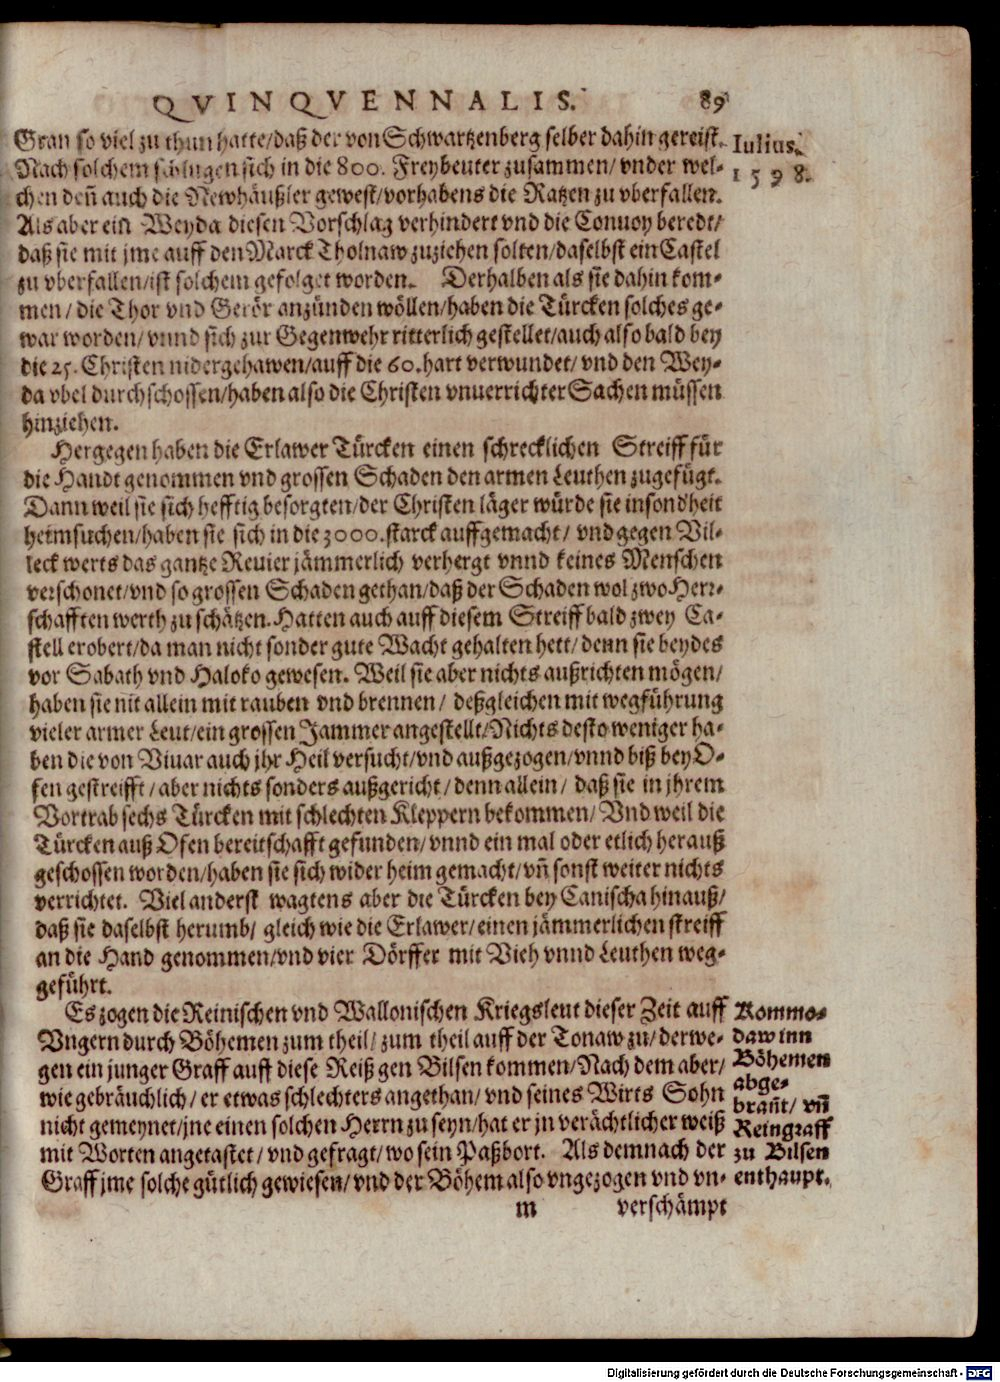 QVINQVENNALIS. 89
Gran so viel zu thun hatte/daß der von Schwartzenberg selber dahin gereist.
Nach solchem schlugen sich in die 800. Freybeuter zusammen/ vnder wel-
chen deñ auch die Newhäußler gewest/vorhabens die Ratzen zu vberfallen.
Als aber ein Weyda diesen Vorschlag verhindert vnd die Conuoy beredt/
daß sie mit jme auff den Marck Tholnaw zuziehen solten/daselbst ein Castel
zu vberfallen/ist solchem gefolget worden. Derhalben als sie dahin kom-
men/ die Thor vnd Gerör anzünden wöllen/haben die Türcken solches ge-
war worden/ vnnd sich zur Gegenwehr ritterlich gestellet/auch also bald bey
die 25. Christen nidergehawen/auff die 60. hart verwundet/ vnd den Wey-
da vbel durchschossen/haben also die Christen vnuerrichter Sachen müssen
hinziehen.
Hergegen haben die Erlawer Türcken einen schrecklichen Streiff für
die Handt genommen vnd grossen Schaden den armen Leuthen zugefügt.
Dann weil sie sich hefftig besorgten/der Christen läger würde sie insondheit
heimsuchen/haben sie sich in die 3000. starck auffgemacht/ vnd gegen Vil-
leck werts das gantze Reuier jämmerlich verhergt vnnd keines Menschen
verschonet/vnd so grossen Schaden gethan/daß der Schaden wol zwo Herr-
schafften werth zu schätzen. Hatten auch auff diesem Streiff bald zwey Ca-
stell erobert/da man nicht sonder gute Wacht gehalten hett/ denn sie beydes
vor Sabath vnd Haloko gewesen. Weil sie aber nichts außrichten mögen/
haben sie nit allein mit rauben vnd brennen/ deßgleichen mit wegführung
vieler armer Leut/ein grossen Jammer angestellt/Nichts desto weniger ha-
ben die von Viuar auch jhr Heil versucht/vnd außgezogen/vnnd biß bey O-
fen gestreifft/ aber nichts sonders außgericht/ denn allein/ daß sie in jhrem
Vortrab sechs Türcken mit schlechten Kleppern bekommen/ Vnd weil die
Türcken auß Ofen bereitschafft gefunden/ vnnd ein mal oder etlich herauß
geschossen worden/haben sie sich wider heim gemacht/vñ sonst weiter nichts
verrichtet. Viel anderst wagtens aber die Türcken bey Canischa hinauß/
daß sie daselbst herumb/ gleich wie die Erlawer/ einen jämmerlichen streiff
an die Hand genommen/vnd vier Dörffer mit Vieh vnnd Leuthen weg-
geführt.
Es zogen die Reinischen vnd Wallonischen Kriegsleut dieser Zeit auff
Vngern durch Böhemen zum theil/ zum theil auff der Tonaw zu/ derwe-
gen ein junger Graff auff diese Reiß gen Bilsen kommen/ Nach dem aber/
wie gebräuchlich/ er etwas schlechters angethan/ vnd seines Wirts Sohn
nicht gemeynet/jne einen solchen Herrn zu seyn/hat er jn verächtlicher weiß
mit Worten angetastet/ vnd gefragt/ wo sein Paßbort. Als demnach der
Graff jme solche gütlich gewiesen/ vnd der Böhem also vngezogen vnd vn-
m verschämpt
Iulius.
1598.
Kommo-
daw inn
Böhemen
abge-
brañt/ vñ
Reingraff
zu Bilsen
enthaupt.
Digitalisierung gefördert durch die Deutsche Forschungsgemeinschaft - DFG